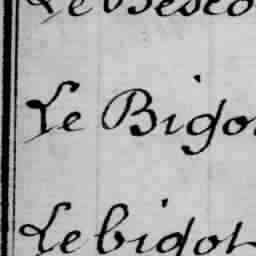 Le Besco
Le Bigo
Le bigot